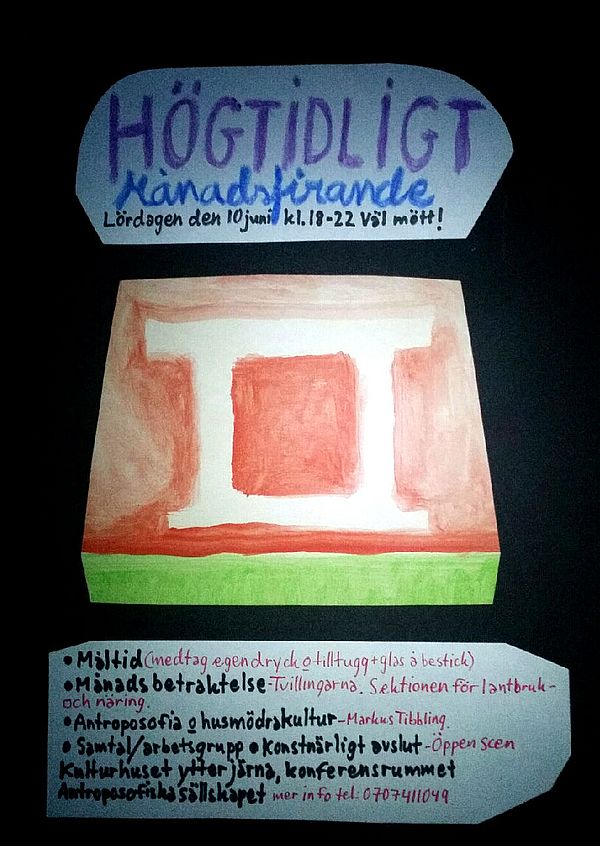 HÖGTIDLIGT
Månadsfirande
Lördagen den 10 juni kl. 18-22 Väl mött!
• Måltid (medtag egen dryck o tilltugg + glas å bestick)
• Månads betraktelse - Tvillingarna. Sektionen för lantbruk-
och näring.
• Antroposofia o husmödrakultur - Markus Tibbling.
• Samtal/arbetsgrupp • konstnärligt avslut - Öppen scen
Kulturhuset ytterjärna, konferensrummet
Antroposofiska sällskapet mer info tel: 0707411049